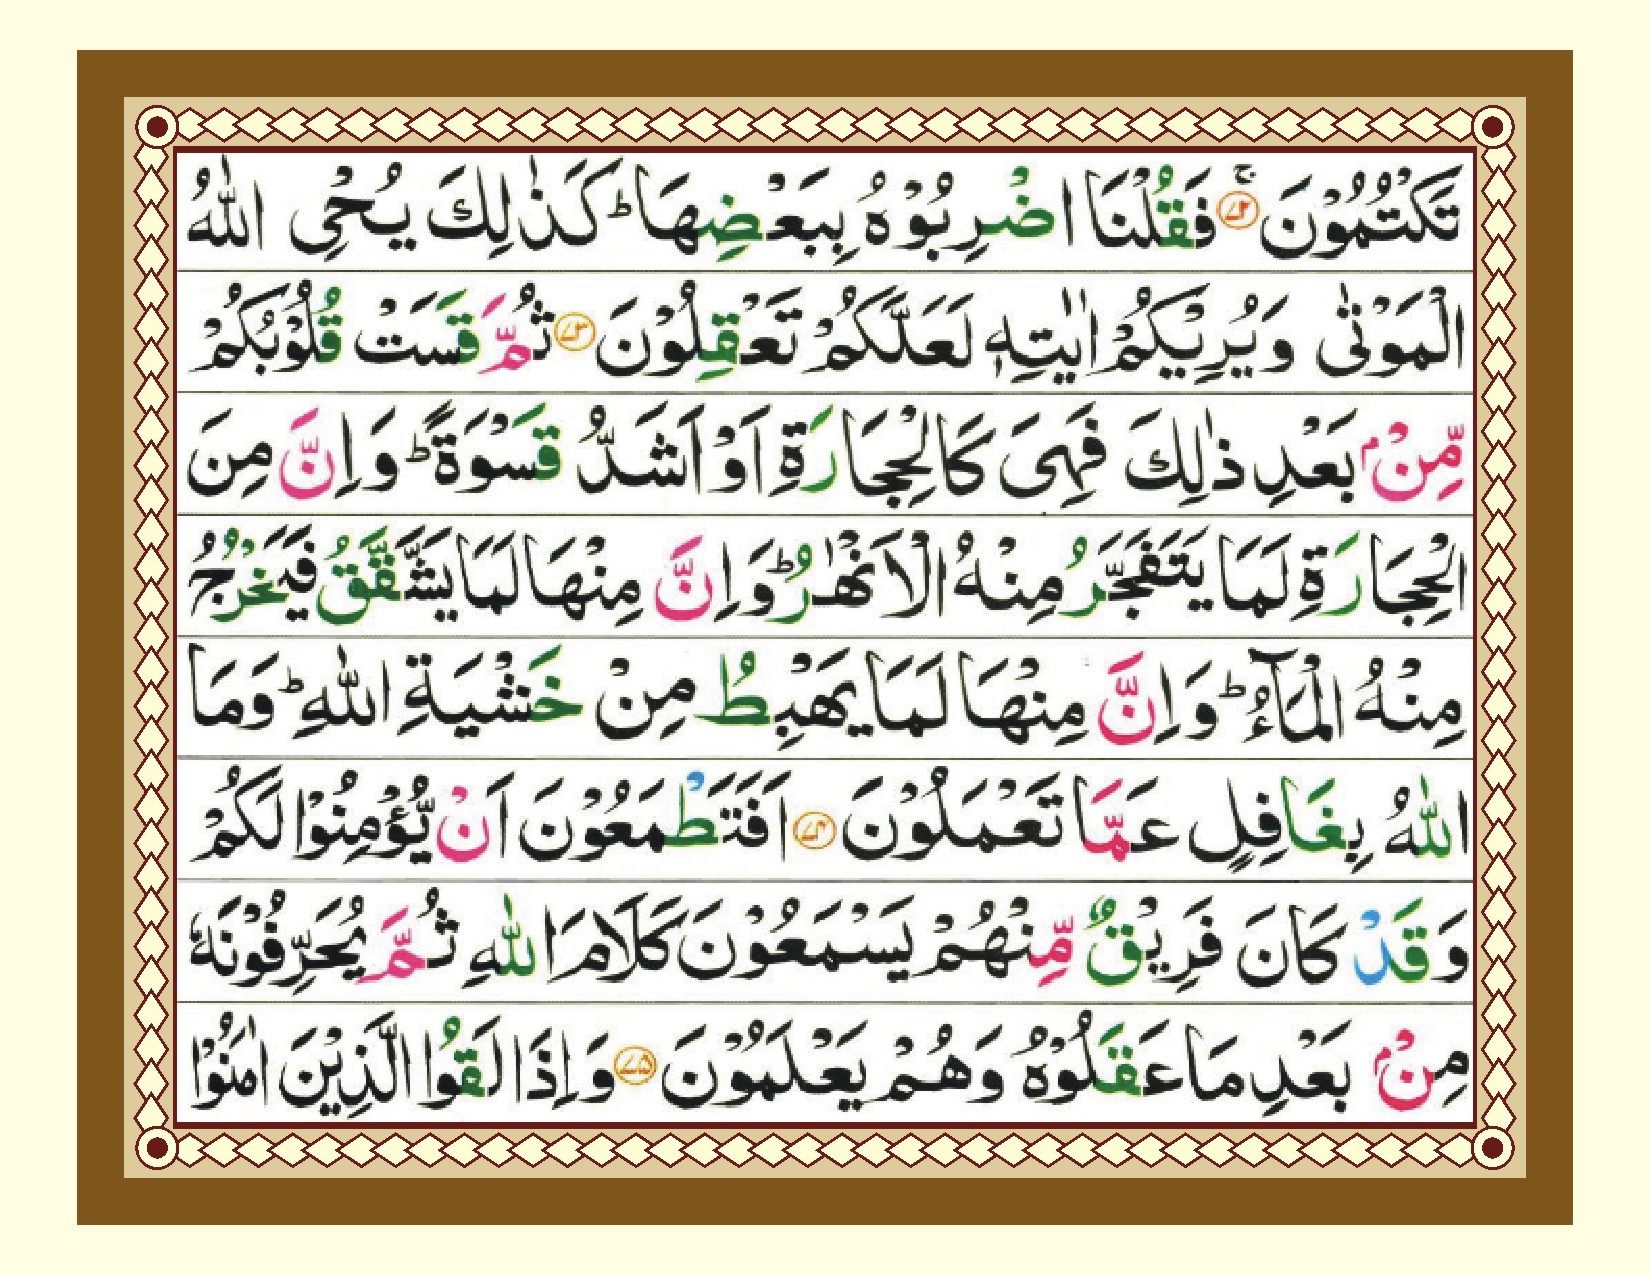 تَكْتُمُوْنَ ۚ﴿۷۲﴾ فَقُلْنَا اضْرِبُوْهُ بِبَعْضِهَا ؕ كَذٰلِكَ يُحْيِ اللّٰهُ
الْمَوْتٰى وَيُرِيْكُمْ اٰيٰتِهٖ لَعَلَّكُمْ تَعْقِلُوْنَ ﴿۷۳﴾ ثُمَّ قَسَتْ قُلُوْبُكُمْ
مِّنْۢ بَعْدِ ذٰلِكَ فَهِىَ كَالْحِجَارَةِ اَوْ اَشَدُّ قَسْوَةً ؕ وَاِنَّ مِنَ
الْحِجَارَةِ لَمَا يَتَفَجَّرُ مِنْهُ الْاَنْهٰرُ ؕ وَاِنَّ مِنْهَا لَمَا يَشَّقَّقُ فَيَخْرُجُ
مِنْهُ الْمَآءُ ؕ وَاِنَّ مِنْهَا لَمَا يَهْبِطُ مِنْ خَشْيَةِ اللّٰهِ ؕ وَمَا
اللّٰهُ بِغَافِلٍ عَمَّا تَعْمَلُوْنَ ﴿۷۴﴾ اَفَتَطْمَعُوْنَ اَنْ يُّؤْمِنُوْا لَكُمْ
وَقَدْ كَانَ فَرِيْقٌ مِّنْهُمْ يَسْمَعُوْنَ كَلَامَ اللّٰهِ ثُمَّ يُحَرِّفُوْنَهٗ
مِنْۢ بَعْدِ مَا عَقَلُوْهُ وَهُمْ يَعْلَمُوْنَ ﴿۷۵﴾ وَاِذَا لَقُوا الَّذِيْنَ اٰمَنُوْا